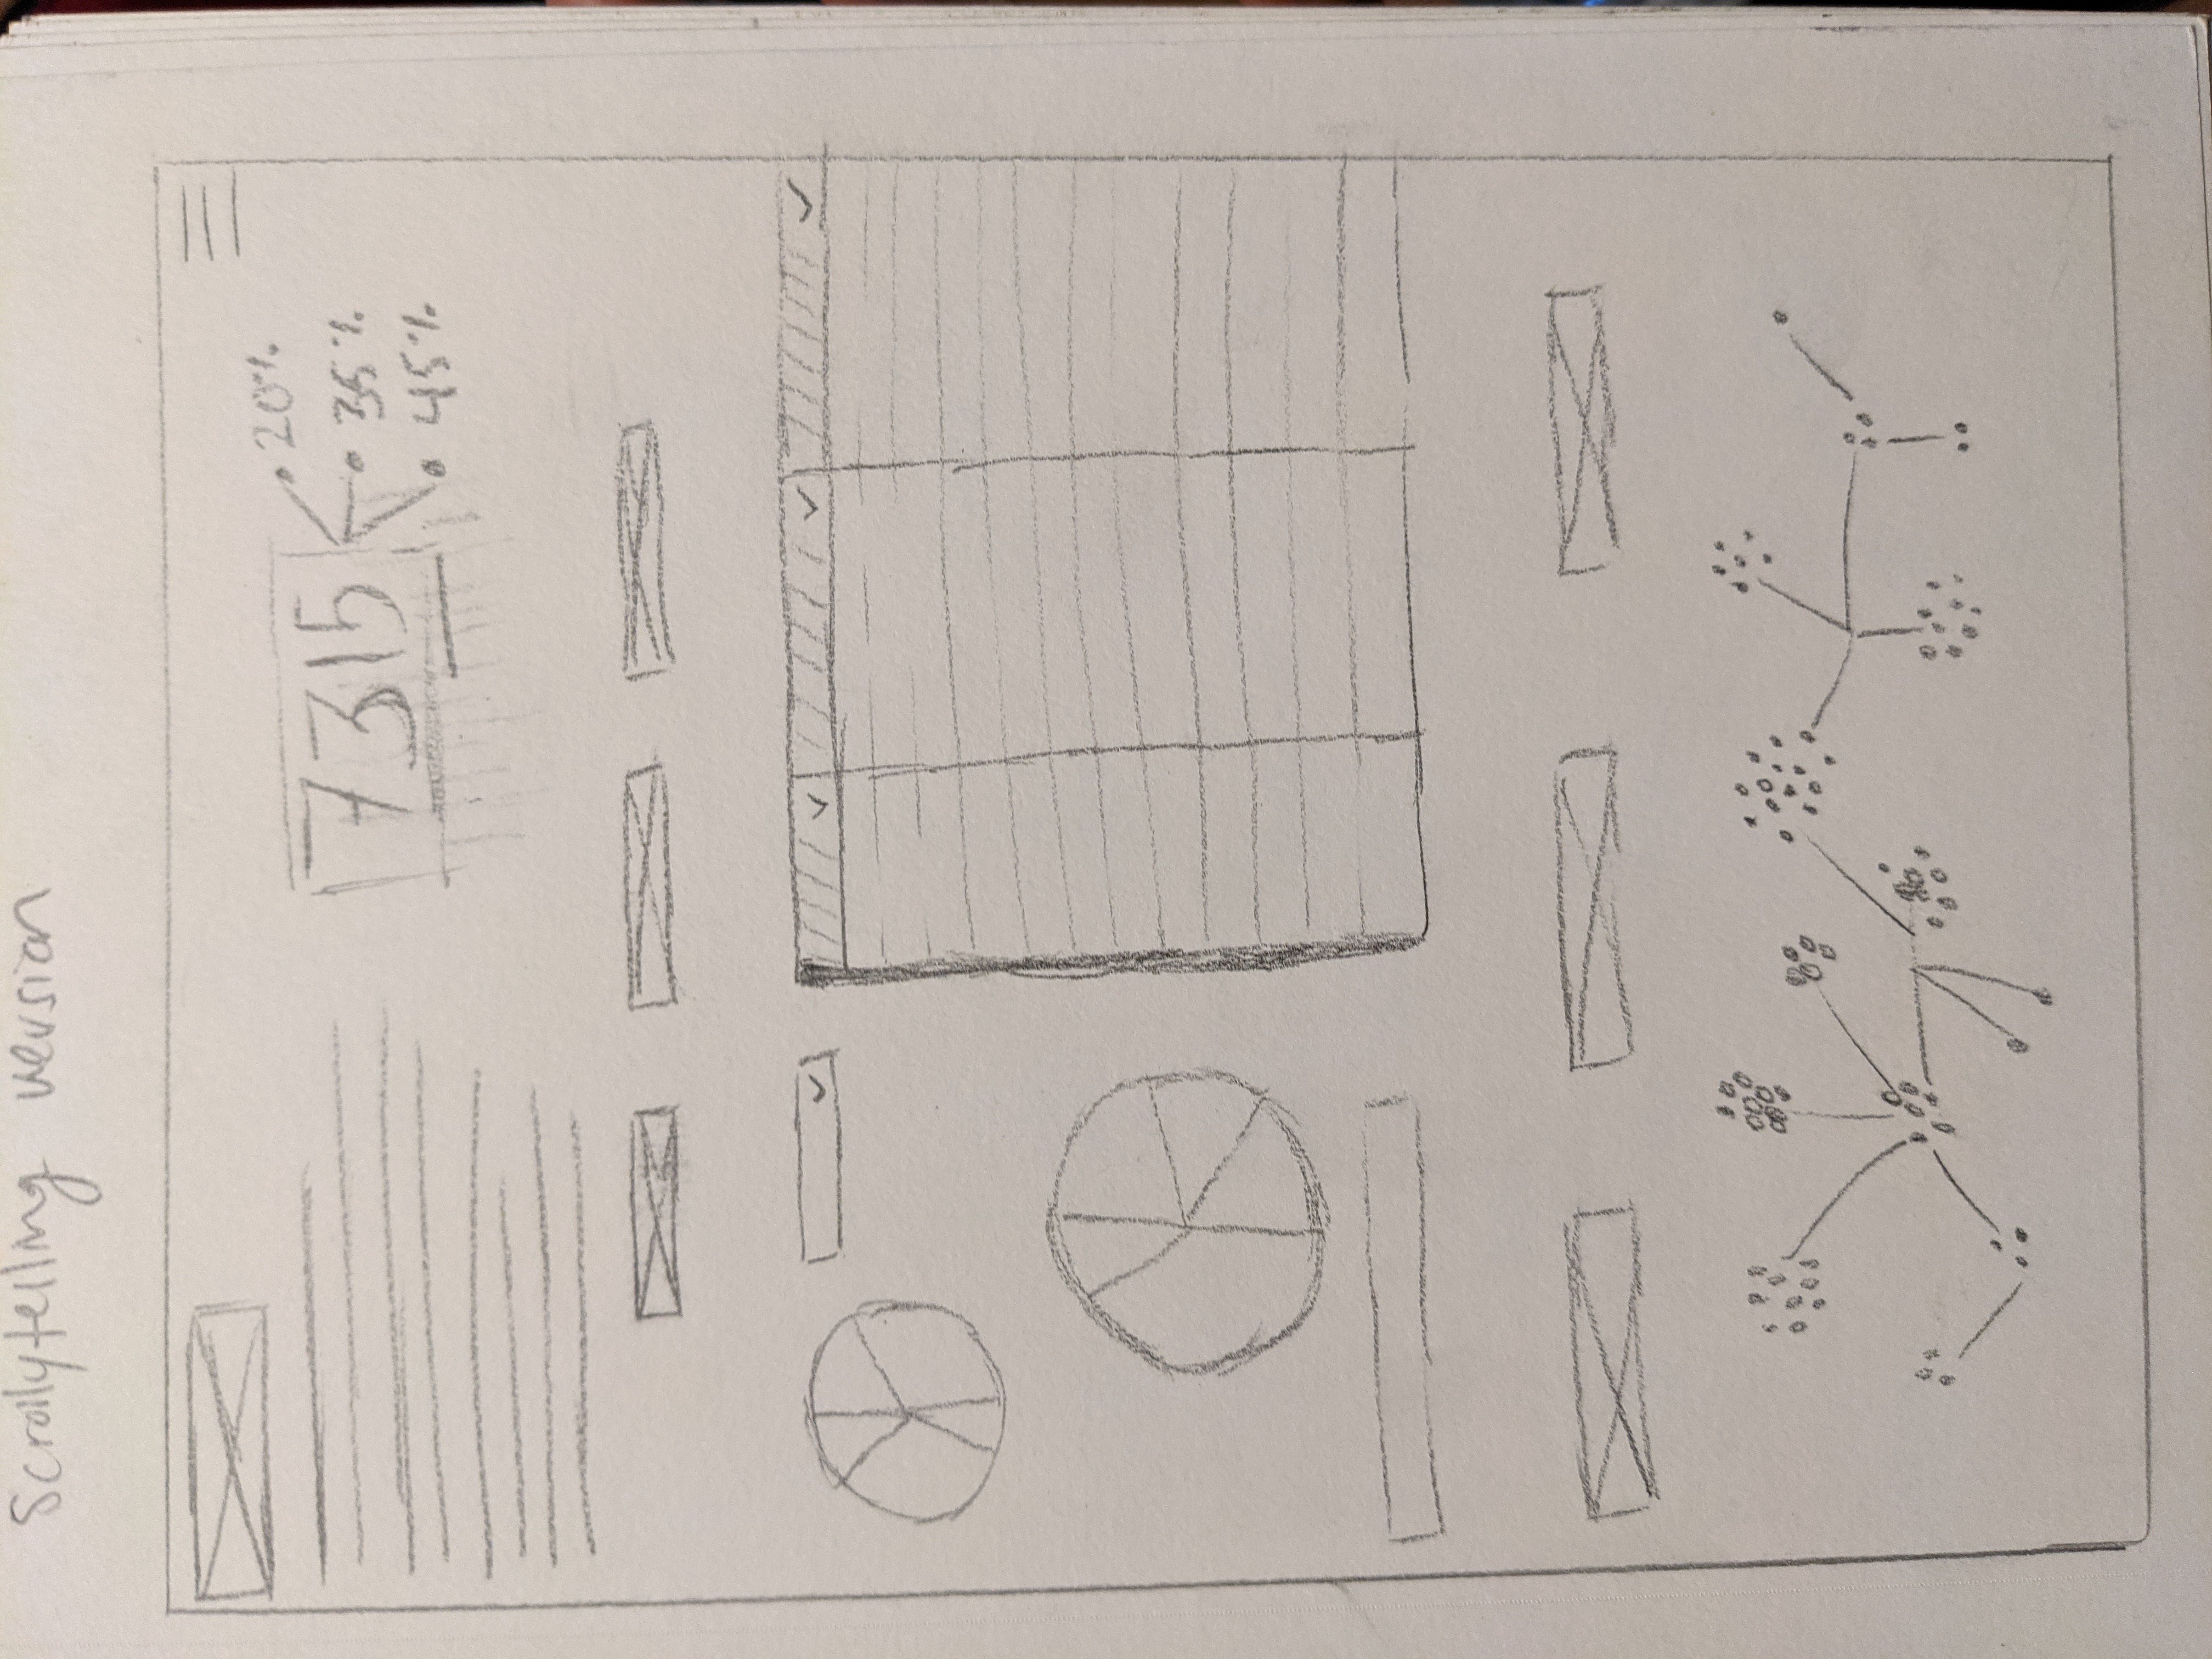 Scrollytelling version
20%
7315
35%
45%